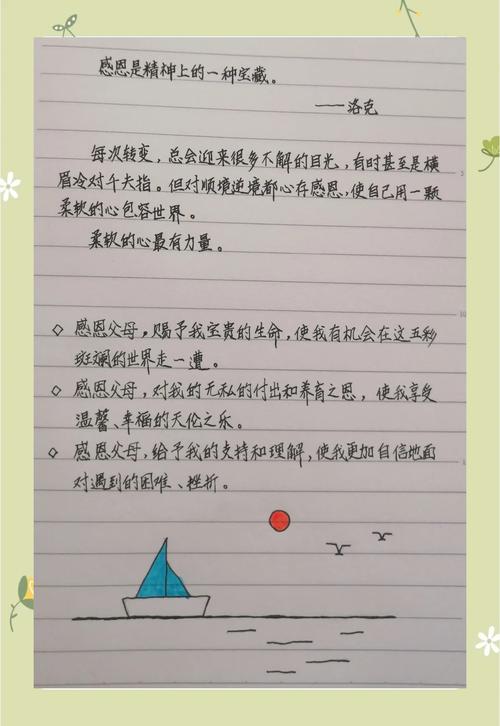 感恩是精神上的一种宝藏。
——洛克
每次转变，总会迎来很多不解的目光，有时甚至是横
眉冷对千夫指。但对顺境逆境都心存感恩，使自己用一颗
柔软的心包容世界。
柔软的心最有力量。
◇ 感恩父母，赐予我宝贵的生命，使我有机会在这五彩
斑斓的世界走一遭。
◇ 感恩父母，对我的无私的付出和养育之恩，使我享受
温馨、幸福的天伦之乐。
◇ 感恩父母，给予我的支持和理解，使我更加自信地面
对遇到的困难、挫折。